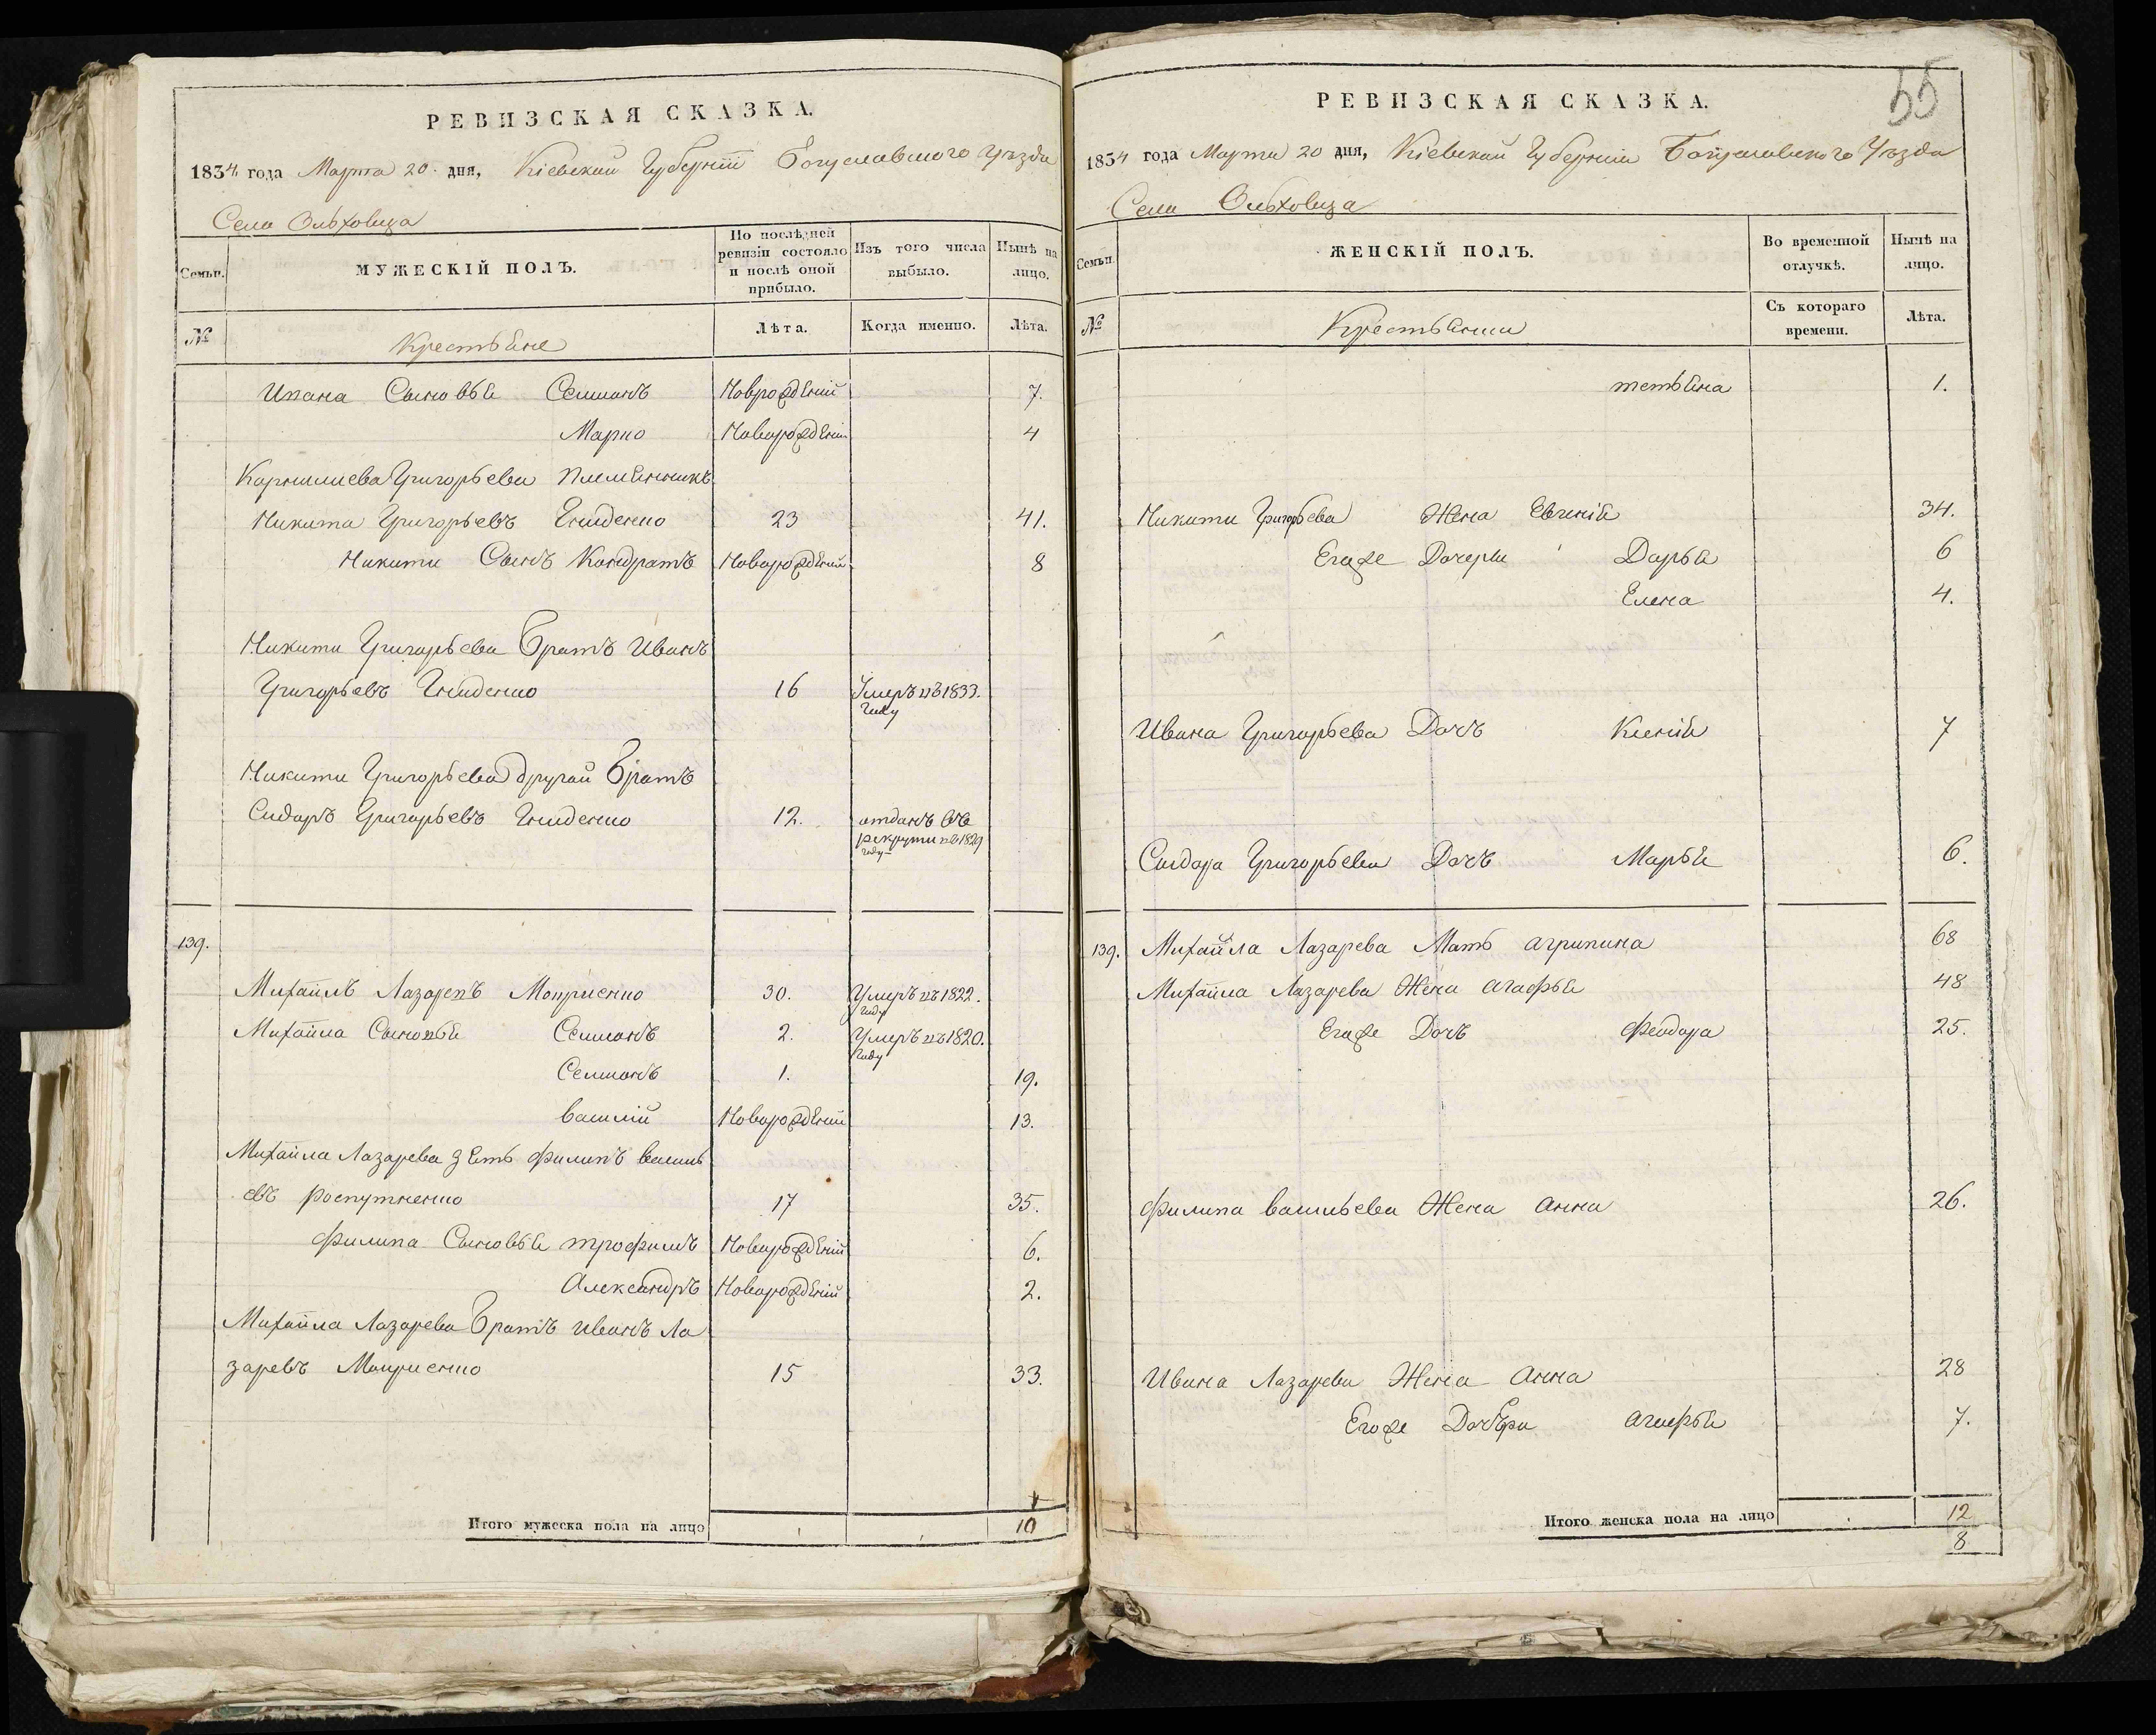 РЕВИЗСКАЯ СКАЗКА.
1834 года Марта 20 дня, Кіевской Губерніи Богуславского Уѣзда
Села Ольховца
Семьи.
МУЖЕСКІЙ ПОЛЪ.
По послѣдней ревизіи состояло и послѣ оной прибыло.
Изъ того числа выбыло.
Нынѣ на лицо.
№
Крестьяне
Лѣта.
Когда именно.
Лѣта.
Ивана Сыновья Семионъ Новорожденій 7.
Марко Новорожденій 4
Корнилиева Григорьева племянникъ
Никита Григорьевъ 23 41.
Никити Сынъ Кондратъ Новорожденій 8
Никити Григорьева Братъ Иванъ
Григорьевъ 16 Умеръ въ 1833. Году
Никити Григорьева другой Братъ
Сидоръ Григорьевъ 12. отданъ въ рекрути въ 1829 году
139.
Михайлъ Лазаревъ 30. Умеръ въ 1822. Году
Михайла Сыновья Семионъ 2. Умеръ въ 1820. Году
Семионъ 1. 19.
василій Новорожденій 13.
Михайла Лазарева зять филипъ василь
евъ 17 35.
филипа Сыновья трофимъ Новорожденій 6.
Александръ Новорожденій 2.
Михайла Лазарева Братъ иванъ Ла
заревъ 15 33.
Итого мужеска пола на лицо 10
55
РЕВИЗСКАЯ СКАЗКА.
1834 года Марта 20 дня, Кіевской Губерніи Богуславского Уѣзда
Села Ольховца
Семьи
ЖЕНСКІЙ ПОЛЪ.
Во временной отлучкѣ.
Нынѣ на лицо.
№
Крестьянки
Съ котораго времени.
Лѣта.
тетьяна 1.
Никити Григорьева Жена Евгенія 34.
Егоже Дочери Дарья 6
Елена 4.
Ивана Григорьева Дочъ Ксенія 7
Сидора Григорьева Дочъ Марья 6.
139. Михайла Лазарева Мать агрипина 68
Михайла Лазарева Жена агафья 48
Егоже Дочъ феодора 25.
филипа васильева Жена анна 26.
Ивана Лазарева Жена анна 28
Егоже Дочъри агафья 7.
Итого женска пола на лицо 12
8